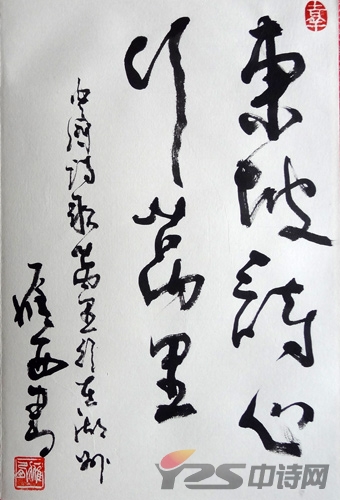 東坡詩心
行萬里
中國詩歌萬里行在湖州
雁西書
YZS中诗网